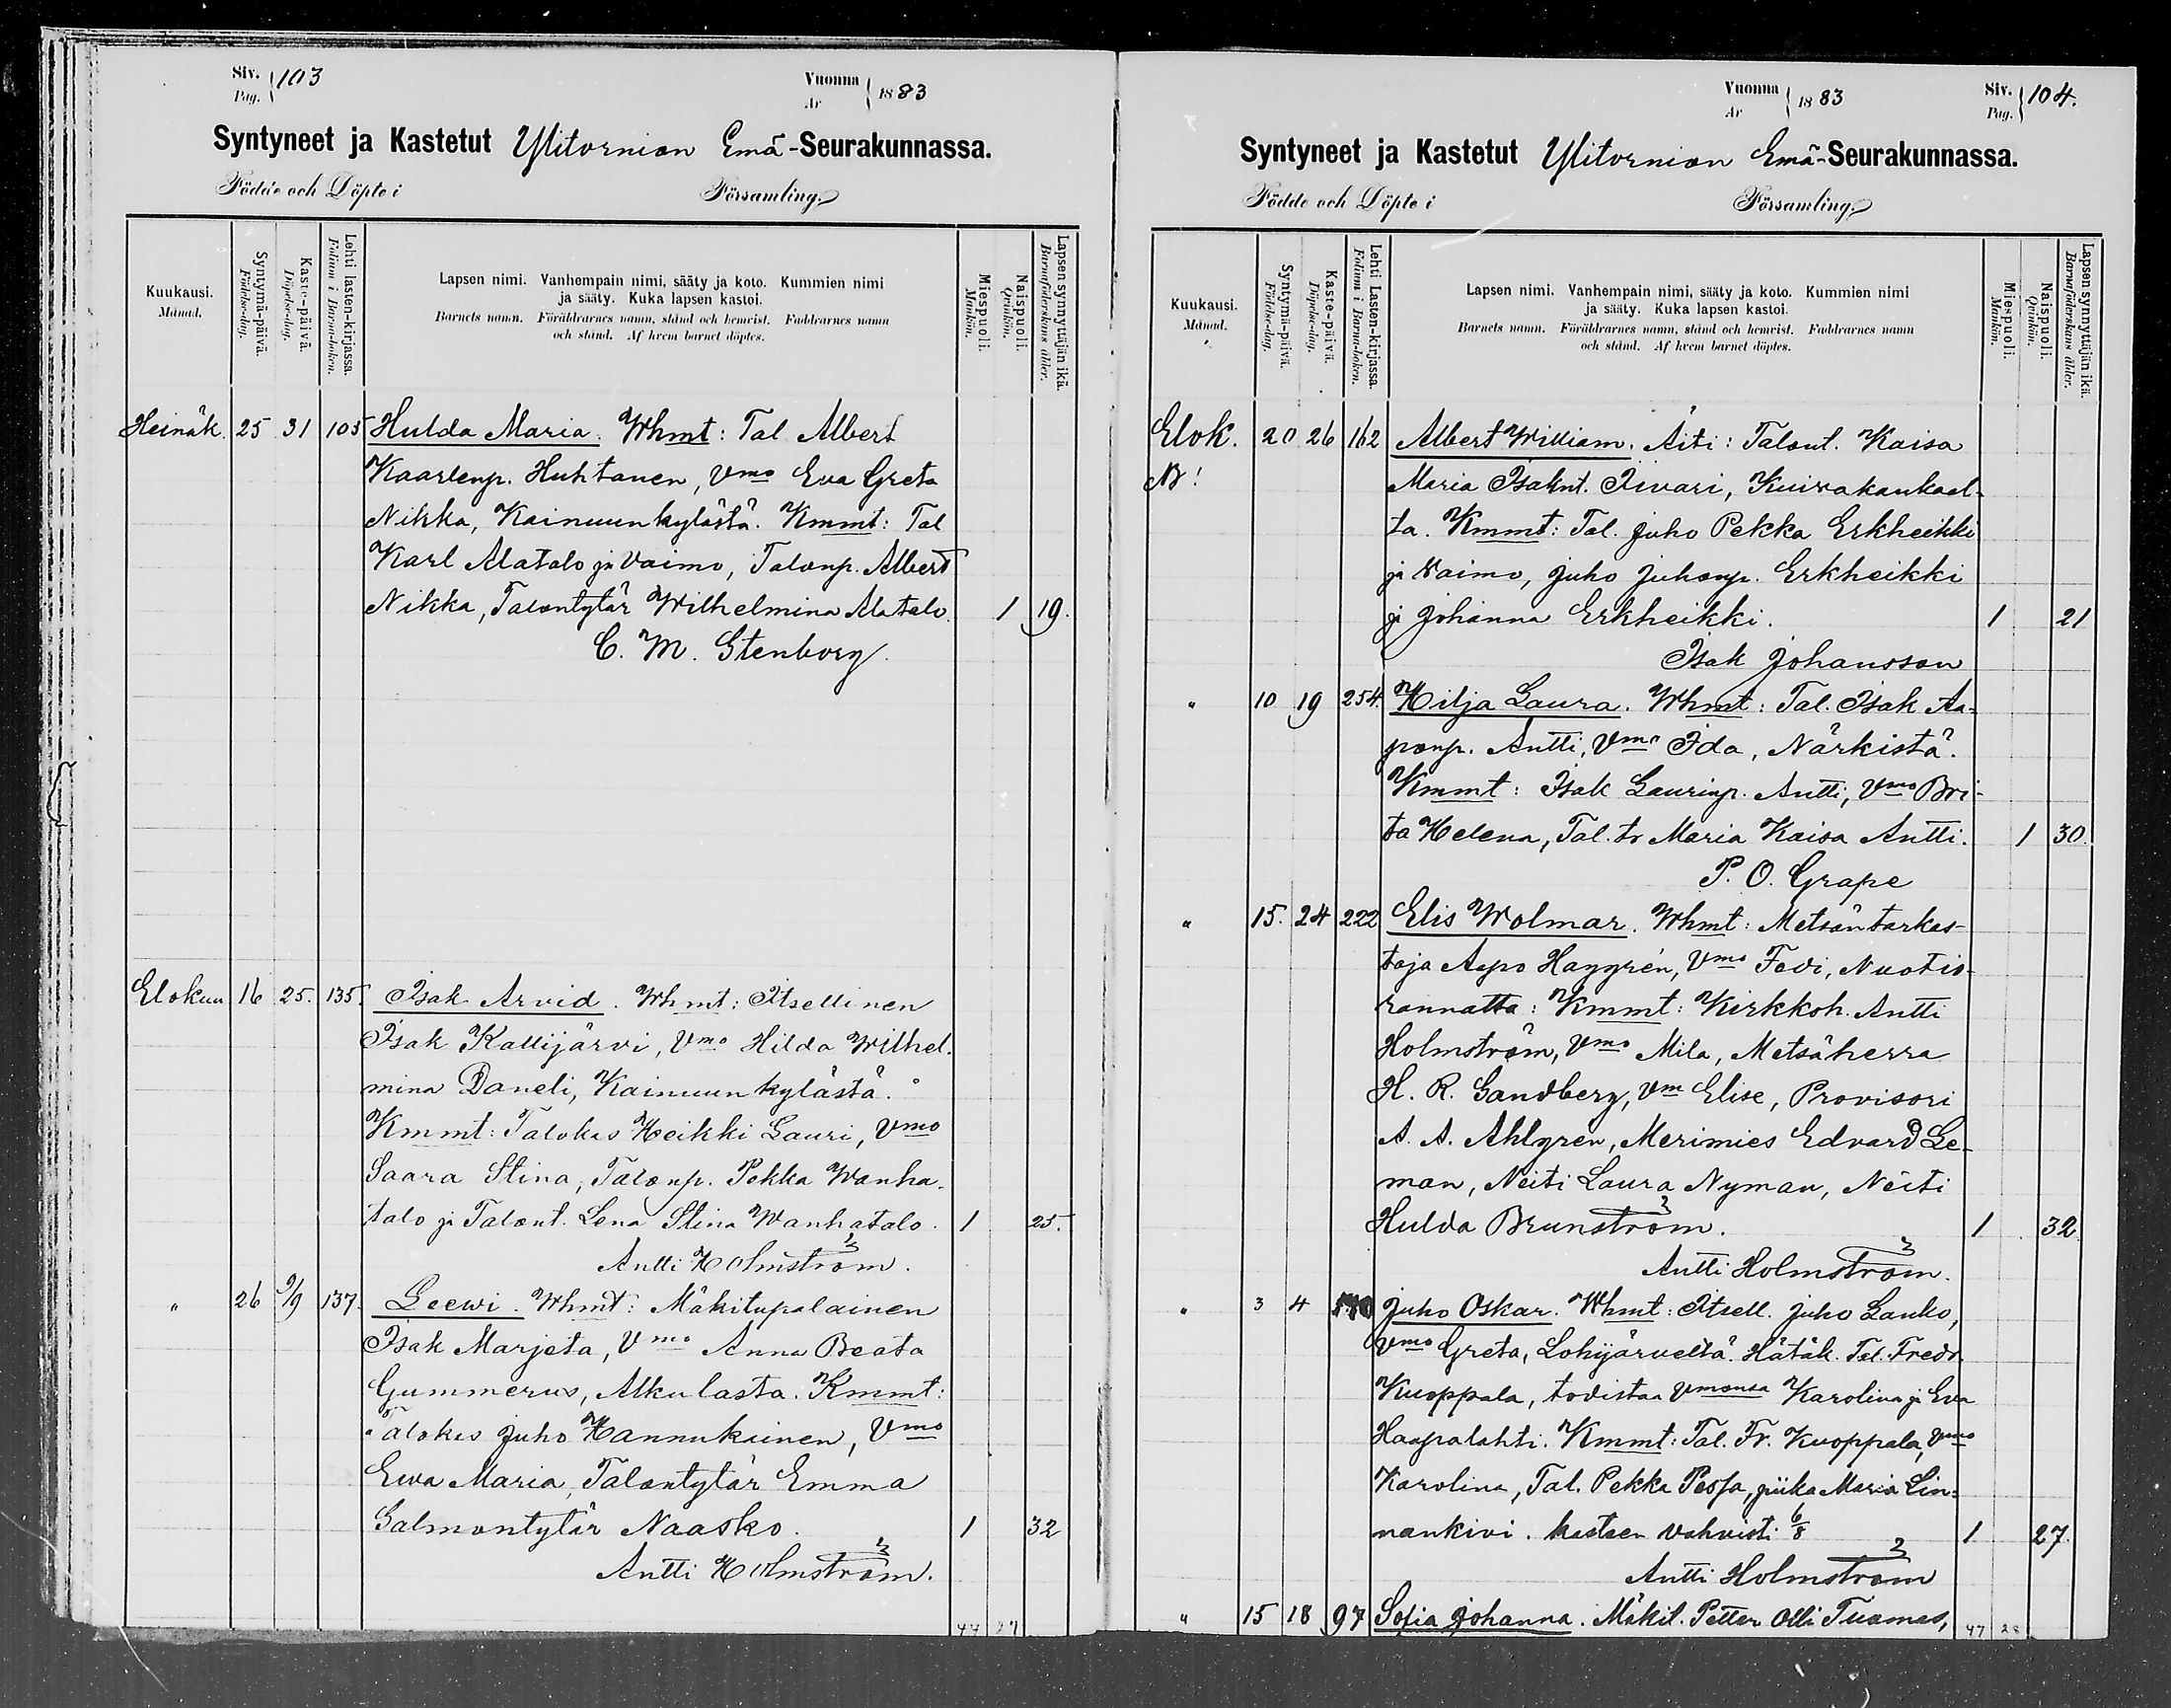 Siv. 103
Pag.
Vuonna 1883
År
Syntyneet ja Kastetut Ylitornion Emä-Seurakunnassa.
Födde och Döpte i Församling.
Kuukausi.
Månad.
Syntymä-päivä.
Födelse-dag.
Kaste-päivä.
Döpelse-dag.
Lehti lasten-kirjassa.
Folium i Barna-boken.
Lapsen nimi. Vanhempain nimi, sääty ja koto. Kummien nimi
ja sääty. Kuka lapsen kastoi.
Barnets namn. Föräldrarnes namn, stånd och hemvist. Faddrarnes namn
och stånd. Af hvem barnet döptes.
Miespuoli.
Mankön.
Naispuoli.
Qvinkön.
Lapsen synnyttäjän ikä.
Barnaföderskans ålder.
Heinäk. 25 31 105 Hulda Maria. Whmt: Tal Albert
Kaarlenp. Huhtanen, Vmo Eva Greta
Nikka, Kainuunkylästä. Kmmt: Tal
Karl Alatalo ja Vaimo, Talonp. Albert
Nikka, Talontytär Wilhelmina Alatalo. 1 19.
C. M. Stenborg.
Elokuu 16 25. 135. Isak Arvid. Whmt: Itsellinen
Isak Kallijärvi, Vmo Hilda Wilhel-
mina Daneli, Kainuunkylästä.
Kmmt: Talokas Heikki Lauri, Vmo
Saara Stina, Talonp. Pekka Wanha-
talo ja Talont. Lena Stina Wanhatalo. 1 25.
Antti Holmström.
" 26 9/9 137. Leewi. Whmt: Mäkitupalainen
Isak Marjeta, Vmo Anna Beata
Gummerus, Alkulasta. Kmmt:
Talokas Juho Hannukainen, Vmo
Ewa Maria, Talontytär Emma
Salmontytär Naasko. 1 32
Antti Holmström.
47 27
Vuonna 1883
År
Siv. 104.
Pag.
Syntyneet ja Kastetut Ylitornion Emä-Seurakunnassa.
Födde och Döpte i Församling.
Kuukausi.
Månad.
Syntymä-päivä.
Födelse-dag.
Kaste-päivä.
Döpelse-dag.
Lehti Lasten-kirjassa.
Folium i Barna-boken.
Lapsen nimi. Vanhempain nimi, sääty ja koto. Kummien nimi
ja sääty. Kuka lapsen kastoi.
Barnets namn. Föräldrarnes namn, stånd och hemvist. Faddrarnes namn
och stånd. Af hvem barnet döptes.
Miespuoli.
Mankön.
Naispuoli.
Qvinkön.
Lapsen synnyttäjän ikä.
Barnaföderskans ålder.
Elok. 20 26 162 Albert William. Äiti: Talont. Kaisa
N! Maria Isaknt. Iivari, Kuivakankaal-
ta. Kmmt: Tal. Juho Pekka Erkheikki
ja Vaimo, Juho Juhonp. Erkheikki
ja Johanna Erkheikki. 1 21
Isak Johansson
" 10 19 254. Hilja Laura. Whmt: Tal. Isak Aa-
ponp. Antti, Vmo Ida, Närkistä.
Kmmt: Isak Laurinp. Antti, Vmo Bri-
ta Helena, Tal. tr Maria Kaisa Antti. 1 30.
P. O. Grape
" 15. 24 222 Elis Wolmar. Whmt: Metsäntarkas-
taja Aapo Haggrén, Vmo Fedi, Nuotio-
rannatta: Kmmt: Kirkkoh. Antti
Holmström, Vmo Mila, Metsäherra
H. R. Sandberg, Vm Elise, Provisori
A. A. Ahlgren, Merimies Edvard Le-
man, Neiti Laura Nyman, Neiti
Hulda Brunström. 1 32
Antti Holmström.
" 3 4 Juho Oskar. Whmt: Itsell. Juho Lauko,
Vmo Greta, Lohijärveltä. Hätäk. Tal. Fredr.
Kuoppala, todistaa Vmonsa Karolina ja Eva
Haapalahti. Kmmt: Tal. Fr. Kuoppala, Vmo
Karolina, Tal. Pekka Pessa, piika Maria Lin=
nankivi. kasteen vahvisti 6/8 1 27.
Antti Holmström
" 15 18 97 Sofia Johanna. Mäkit. Petter Olli Tuomas,
47 28